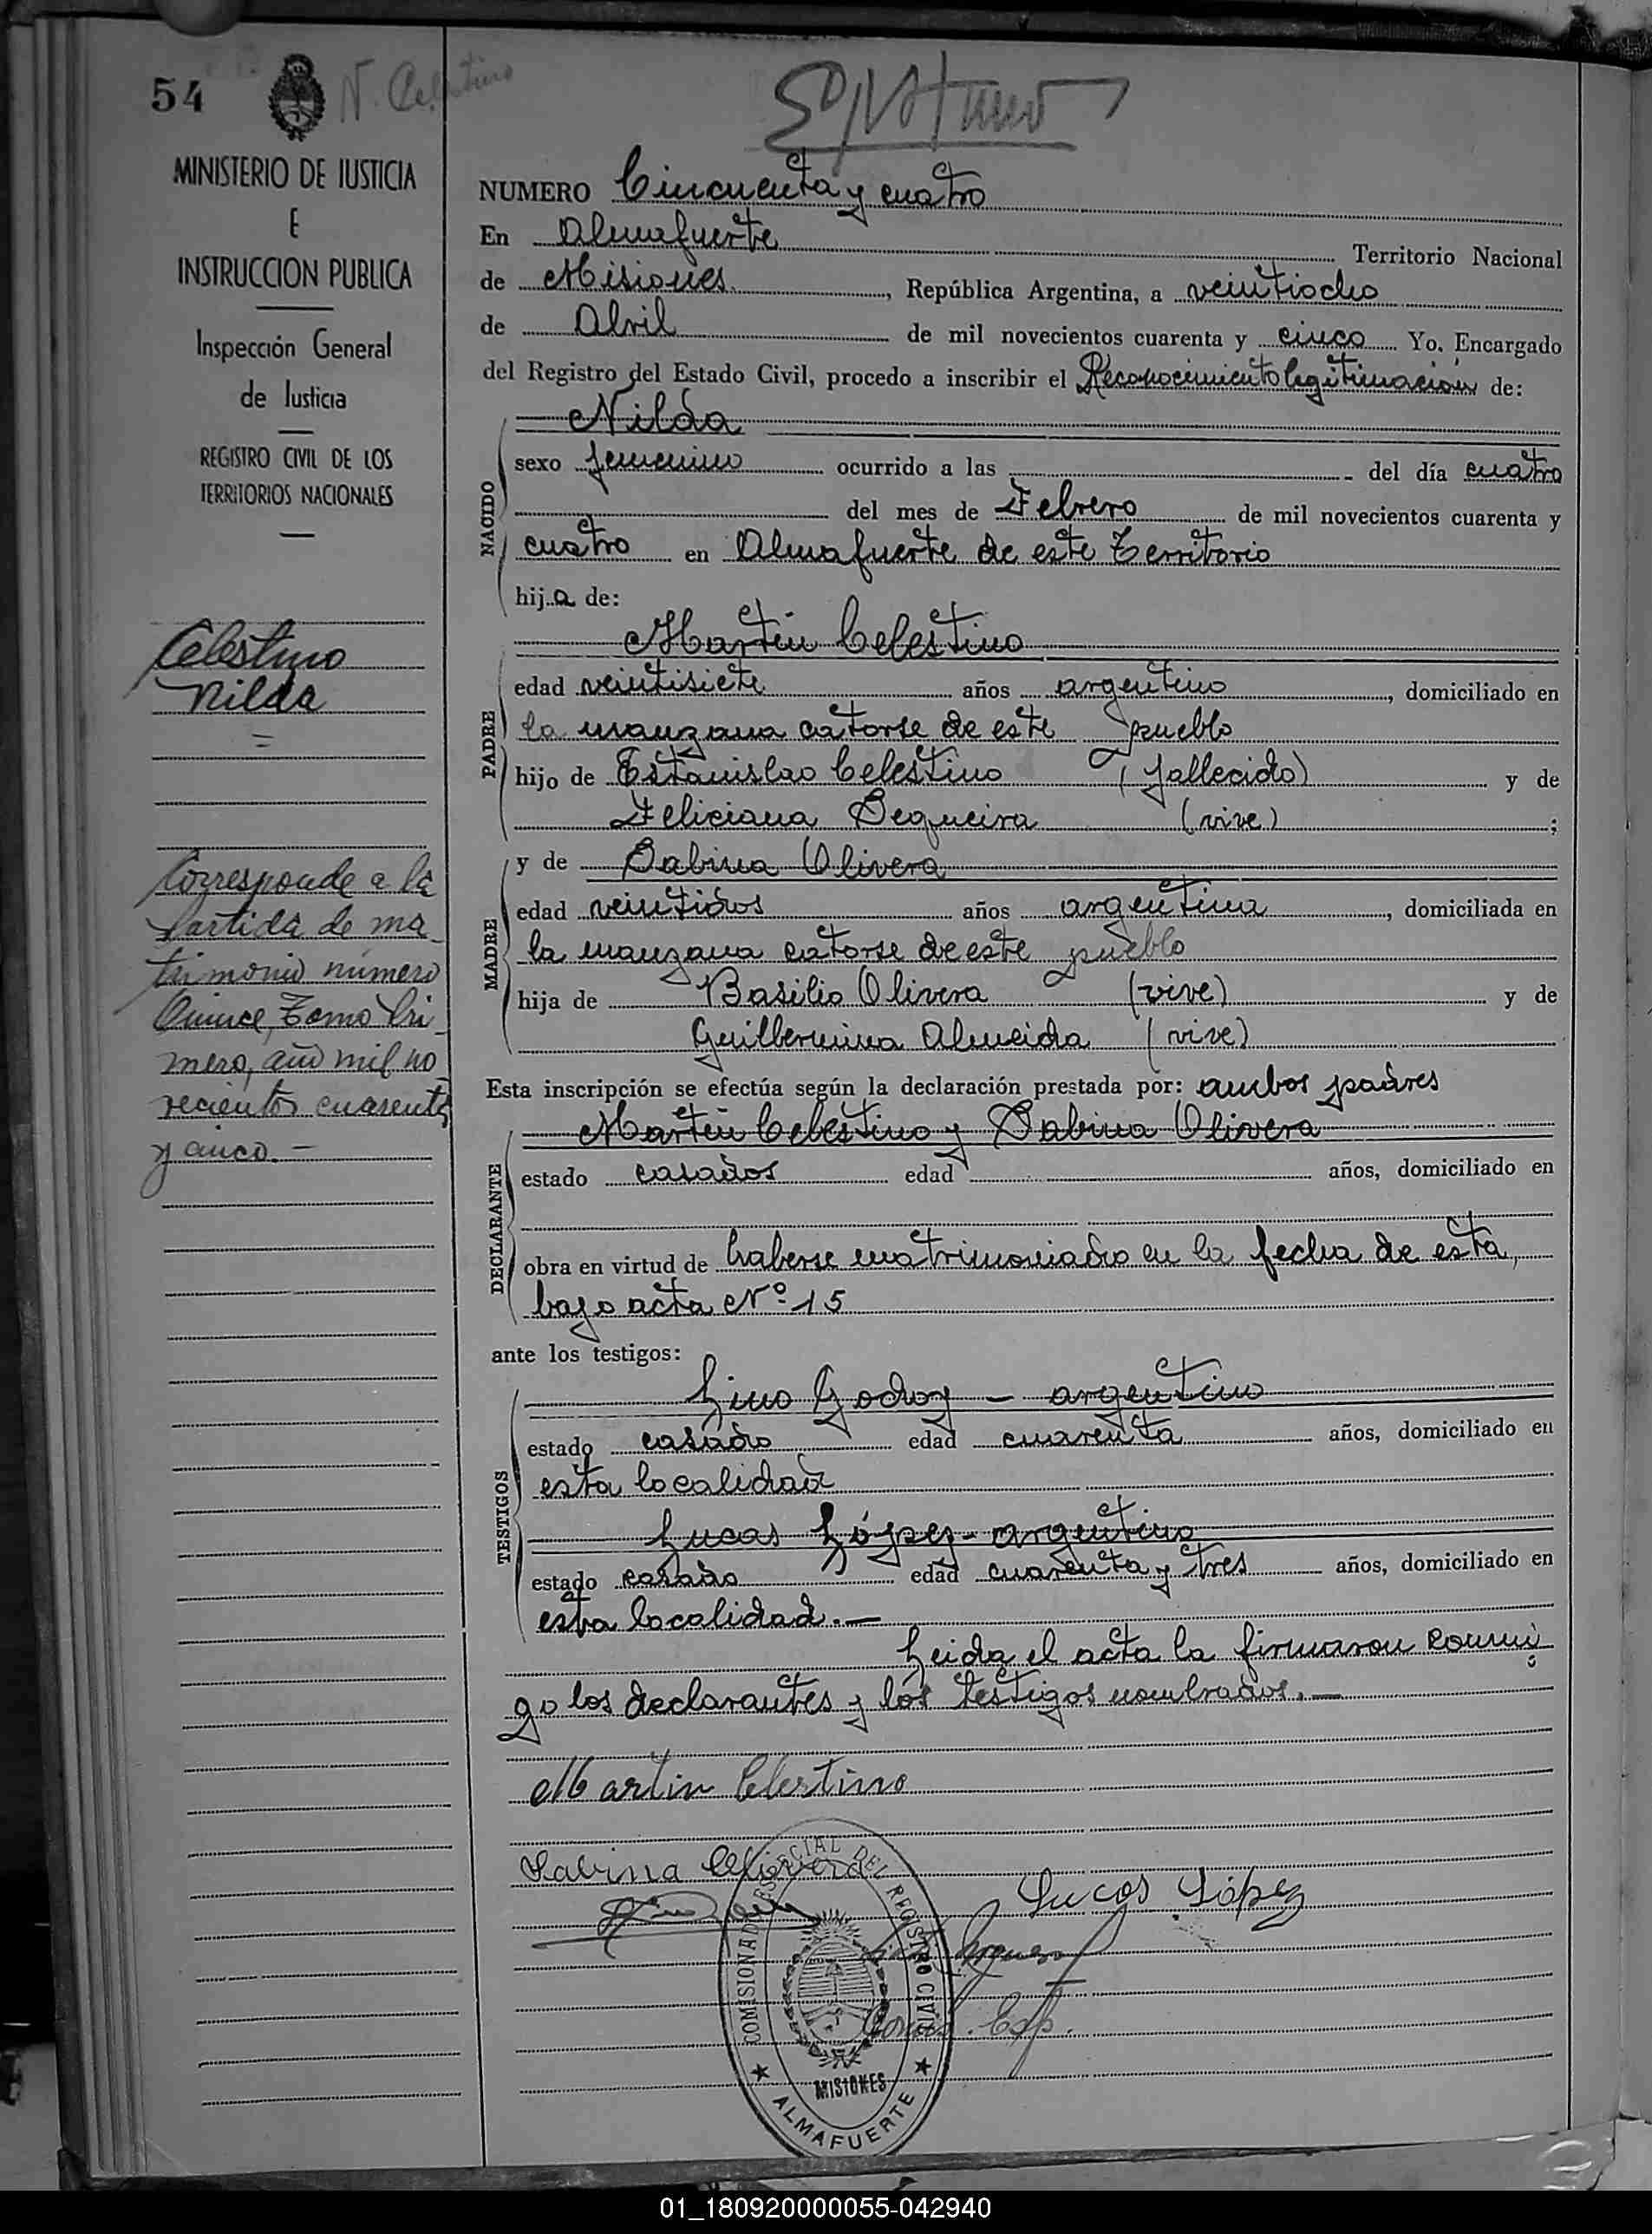 54
N. Celestino
MINISTERIO DE JUSTICIA
E
INSTRUCCION PUBLICA
Inspección General
de Justicia
REGISTRO CIVIL DE LOS
TERRITORIOS NACIONALES
Celestino
Nilda
=
Corresponde a la
Partida de ma
trimonio número
Quince, Tomo Pri
mero, año mil no
vecientos cuarenta
y cinco. —
NUMERO Cincuenta y cuatro
En Almafuerte Territorio Nacional
de Misiones, República Argentina, a veintiocho
de Abril de mil novecientos cuarenta y cinco Yo, Encargado
del Registro del Estado Civil, procedo a inscribir el Reconocimiento legitimación de:
NACIDO
Nilda
sexo femenino ocurrido a las del día cuatro
del mes de Febrero de mil novecientos cuarenta y
cuatro en Almafuerte de este Territorio
hija de:
PADRE
Martin Celestino
edad veintisiete años argentino, domiciliado en
la manzana catorse de este pueblo
hijo de Estanislao Celestino (fallecido) y de
Feliciana Sequeira (vive) ;
MADRE
y de Sabina Olivera
edad veintidos años argentina, domiciliada en
la manzana catorse de este pueblo
hija de Basilio Olivera (vive) y de
Guillermina Almeida (vive)
Esta inscripción se efectúa según la declaración prestada por: ambos padres
DECLARANTE
Martin Celestino y Sabina Olivera
estado casados edad años, domiciliado en
obra en virtud de haberse matrimoniado en la fecha de esta,
bajo acta Nº 15
ante los testigos:
TESTIGOS
Lino Godoy - argentino
estado casado edad cuarenta años, domiciliado en
esta localidad
Lucas López - argentino
estado casado edad cuarenta y tres años, domiciliado en
esta localidad. —
Leida el acta la firmaron conmi
go los declarantes y los testigos nombrados. —
Martin Celestino
Sabina Olivera
Lucas López
COMISIONADO ESPECIAL DEL REGISTRO CIVIL
MISIONES
★ ALMAFUERTE ★
01_180920000055-042940